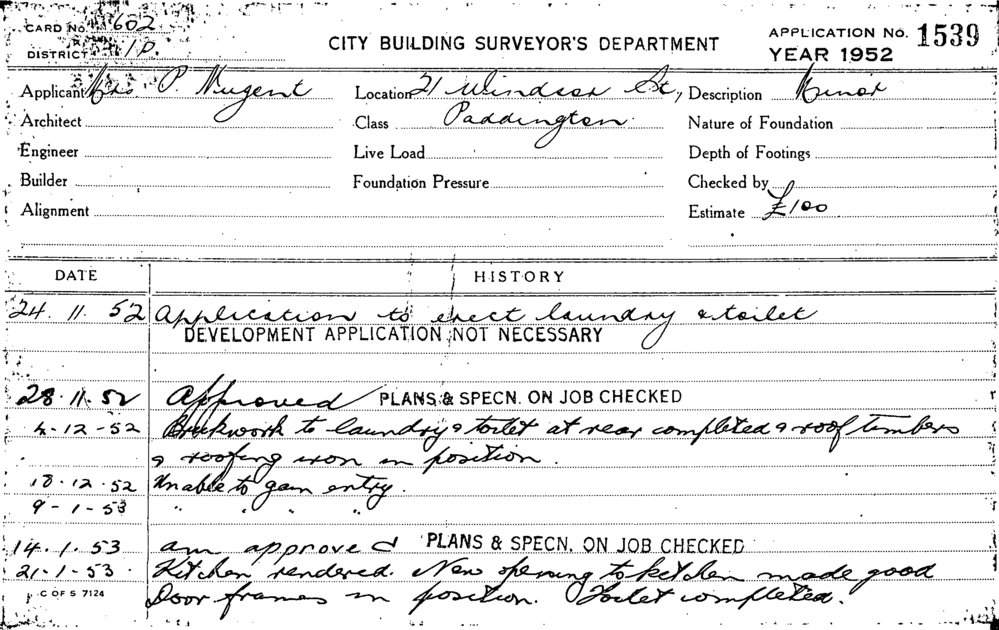 CARD No. 602
DISTRICT 1D.
CITY BUILDING SURVEYOR'S DEPARTMENT
APPLICATION No. 1539
YEAR 1952
Applicant Mrs. P. Nugent Location 21 Windsor St., Description Minor
Architect Class Paddington. Nature of Foundation
Engineer Live Load Depth of Footings
Builder Foundation Pressure Checked by
Alignment Estimate £100
DATE HISTORY
24. 11. 52 Application to erect laundry & toilet
DEVELOPMENT APPLICATION NOT NECESSARY
28. 11. 52 Approved PLANS & SPECN. ON JOB CHECKED
4-12-52 Brickwork to laundry & toilet at rear completed & roof timbers
& roofing iron in position.
18.12.52 Unable to gain entry.
9-1-53 " " " "
14.1.53 am approved PLANS & SPECN. ON JOB CHECKED
21-1-53. Kitchen rendered. New opening to kitchen made good
Door frames in position. Toilet completed.
C OF S 7124